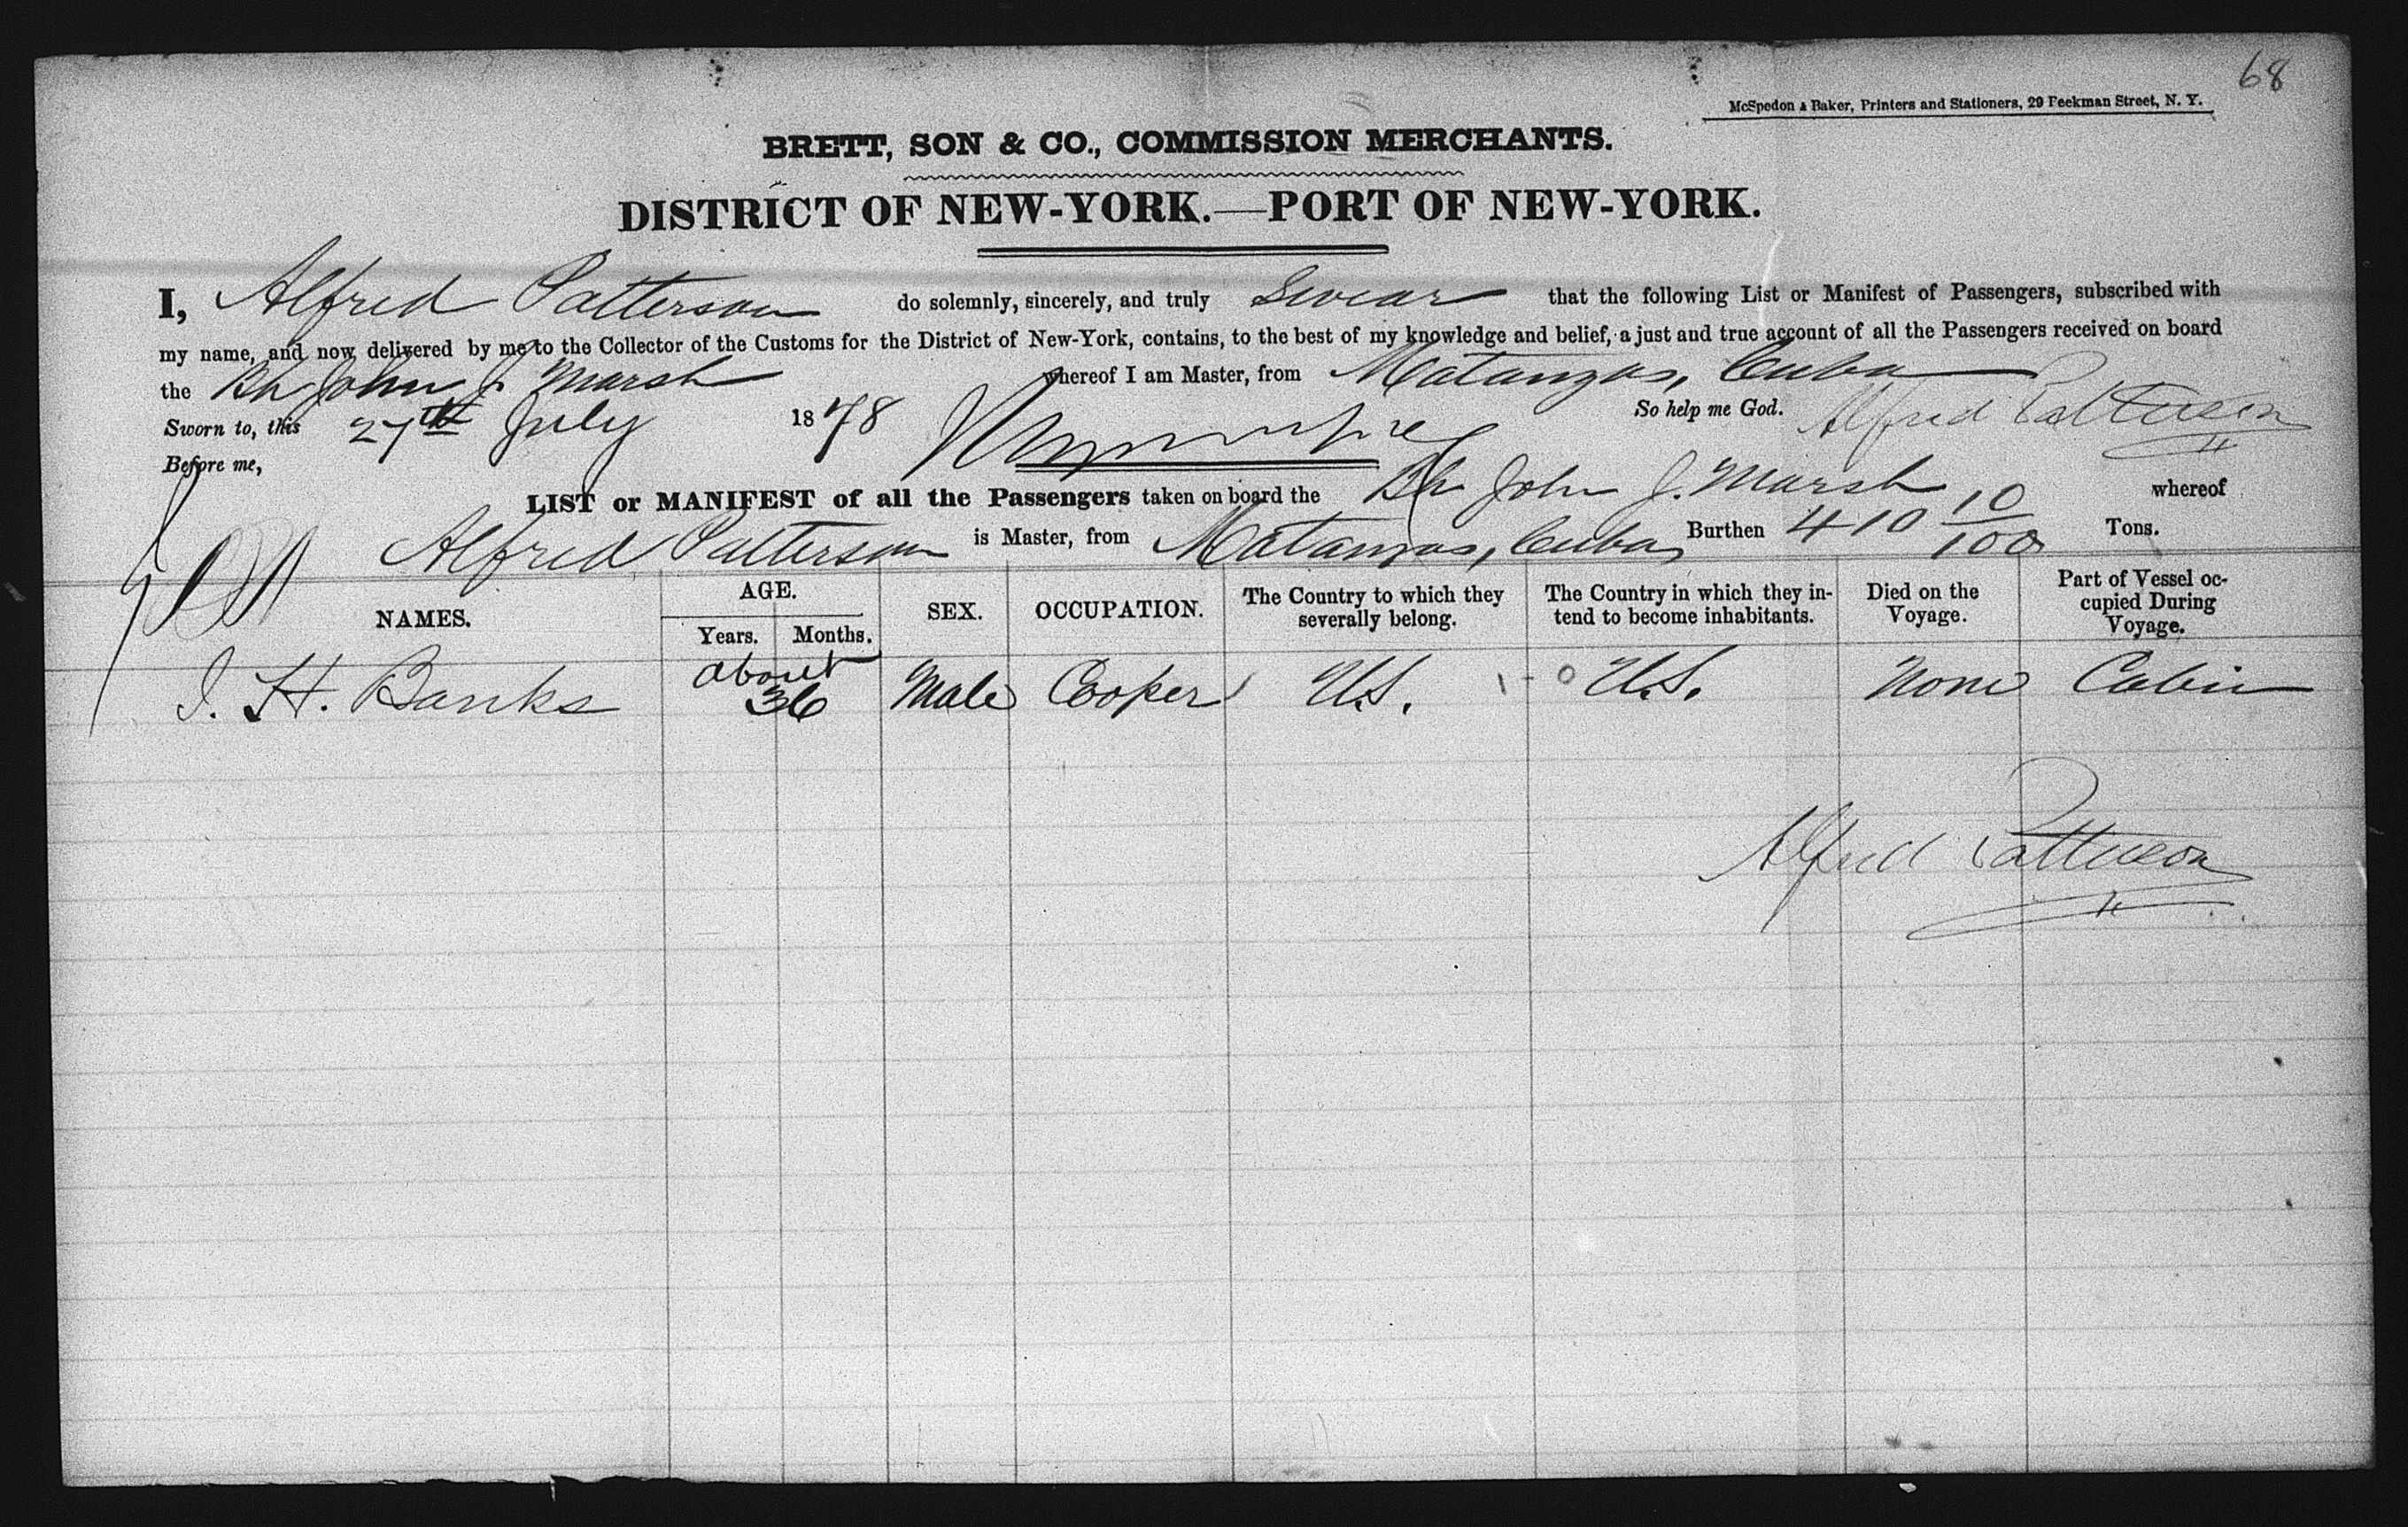 68
McSpedon & Baker, Printers and Stationers, 29 Beekman Street, N. Y.
BRETT, SON & CO., COMMISSION MERCHANTS.
DISTRICT OF NEW-YORK.—PORT OF NEW-YORK.
I, Alfred Patterson do solemnly, sincerely, and truly Swear that the following List or Manifest of Passengers, subscribed with
my name, and now delivered by me to the Collector of the Customs for the District of New-York, contains, to the best of my knowledge and belief, a just and true account of all the Passengers received on board
the Bk John J. Marsh whereof I am Master, from Matanzas, Cuba
Sworn to, this 27th July 1878 So help me God. Alfred Patterson
Before me,
LIST or MANIFEST of all the Passengers taken on board the Bk John J. Marsh whereof
Alfred Patterson is Master, from Matanzas, Cuba, Burthen 410 10/100 Tons.
NAMES. AGE. Years. Months. SEX. OCCUPATION. The Country to which they severally belong. The Country in which they intend to become inhabitants. Died on the Voyage. Part of Vessel occupied During Voyage.
J. H. Banks about 36 Male Cooper U.S. U.S. None Cabin
Alfred Patterson